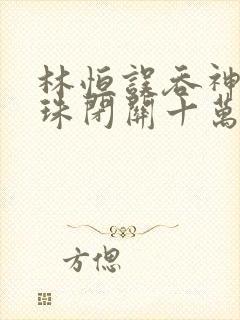 林恒誤吞神
珠閉關十萬
方偲